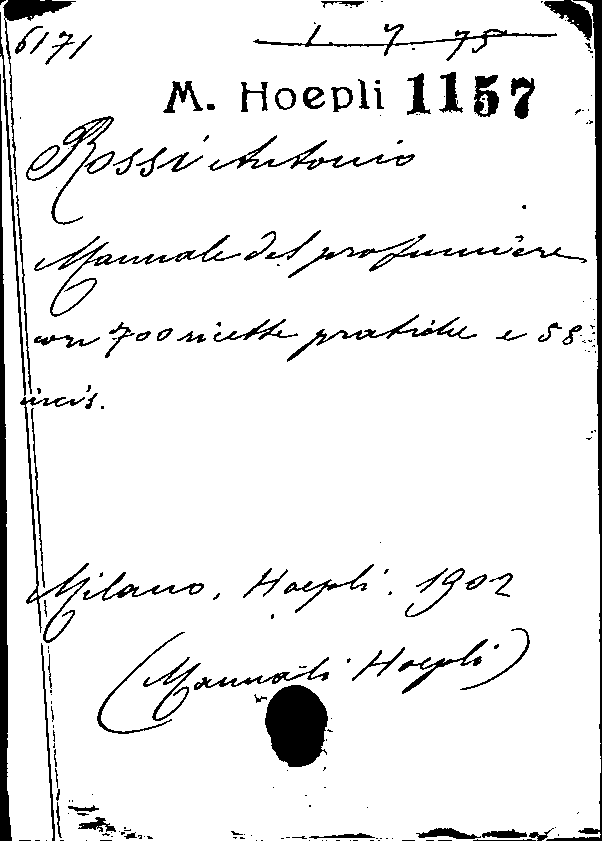 6171
1. 7. 75
M. Hoepli 1157
Rossi Antonio
Manuale del profumiere
con 700 ricette pratiche e 58
incis.
Milano, Hoepli. 1902
(Manuali Hoepli)